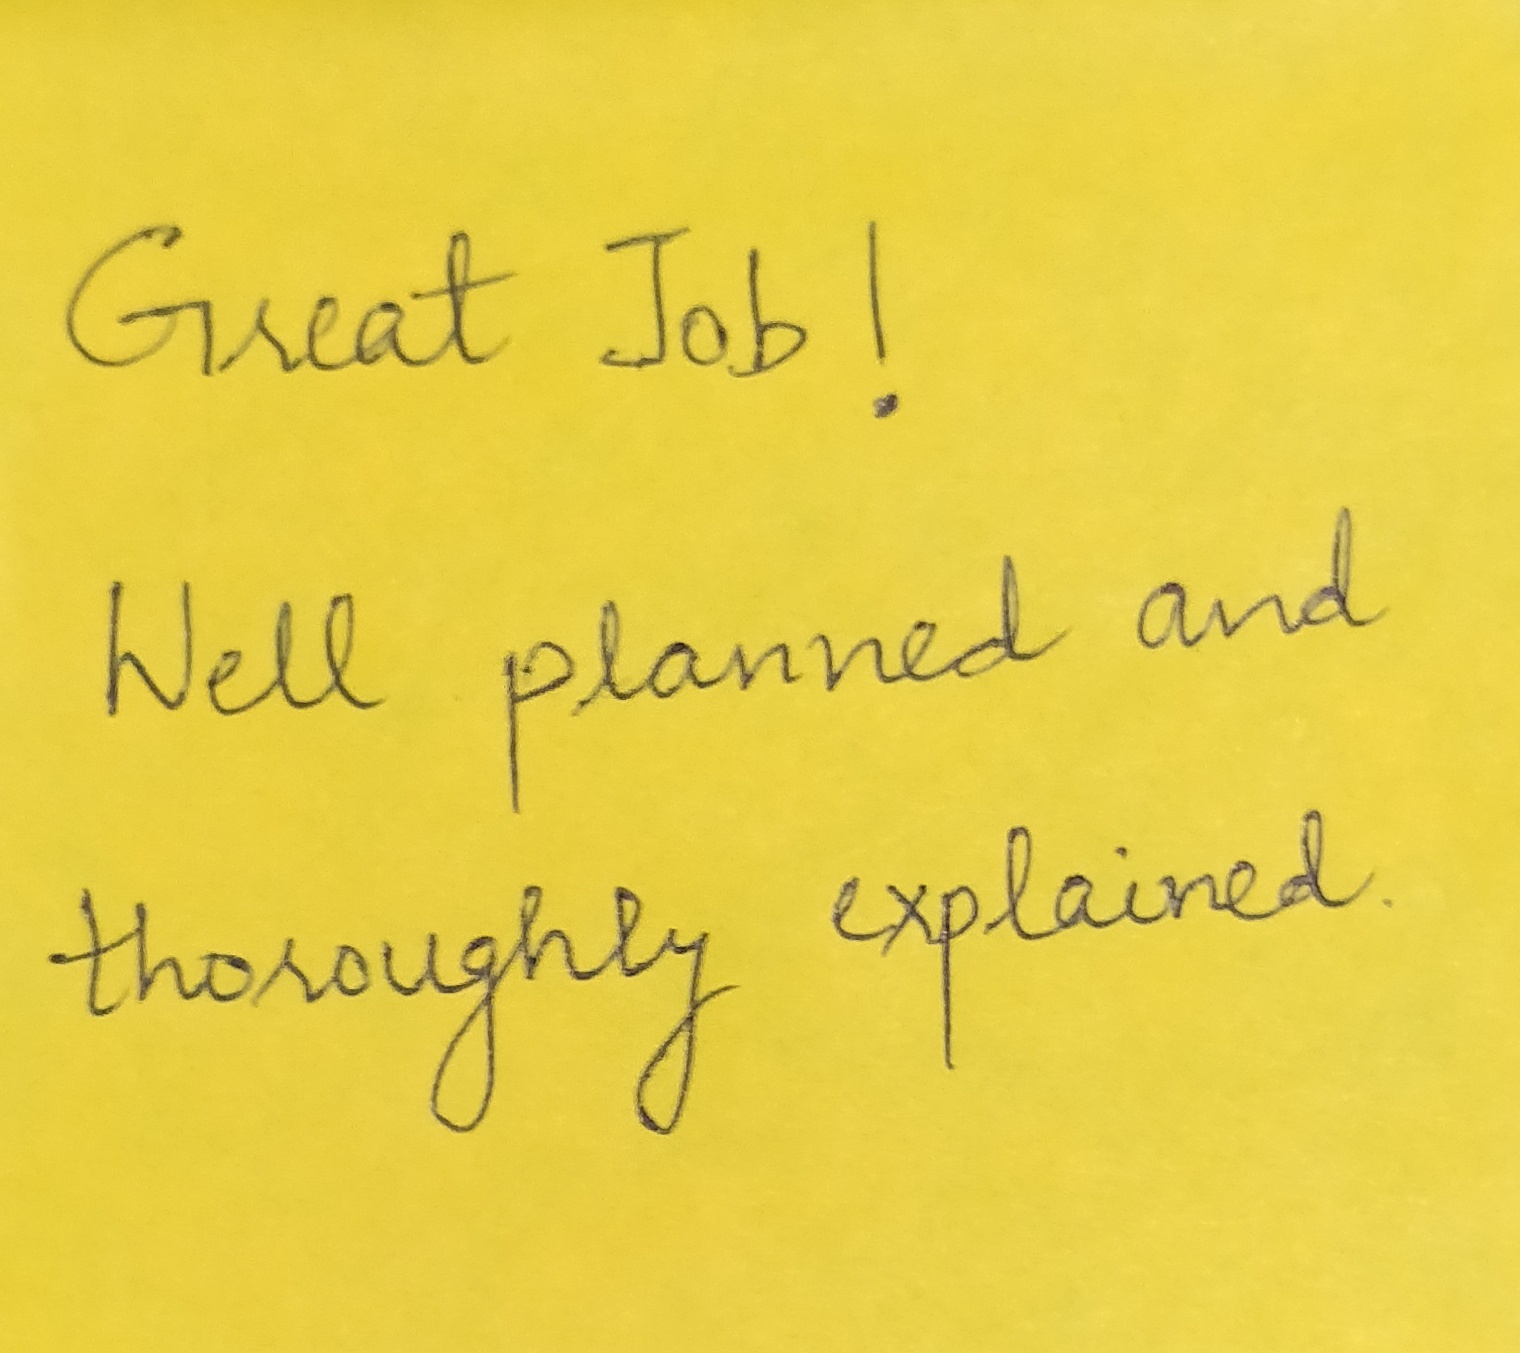 Great Job!
Well planned and
thoroughly explained.